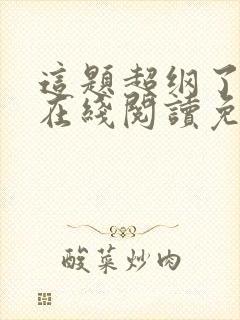 這題超纲了
在綫閱讀免
酸菜炒肉